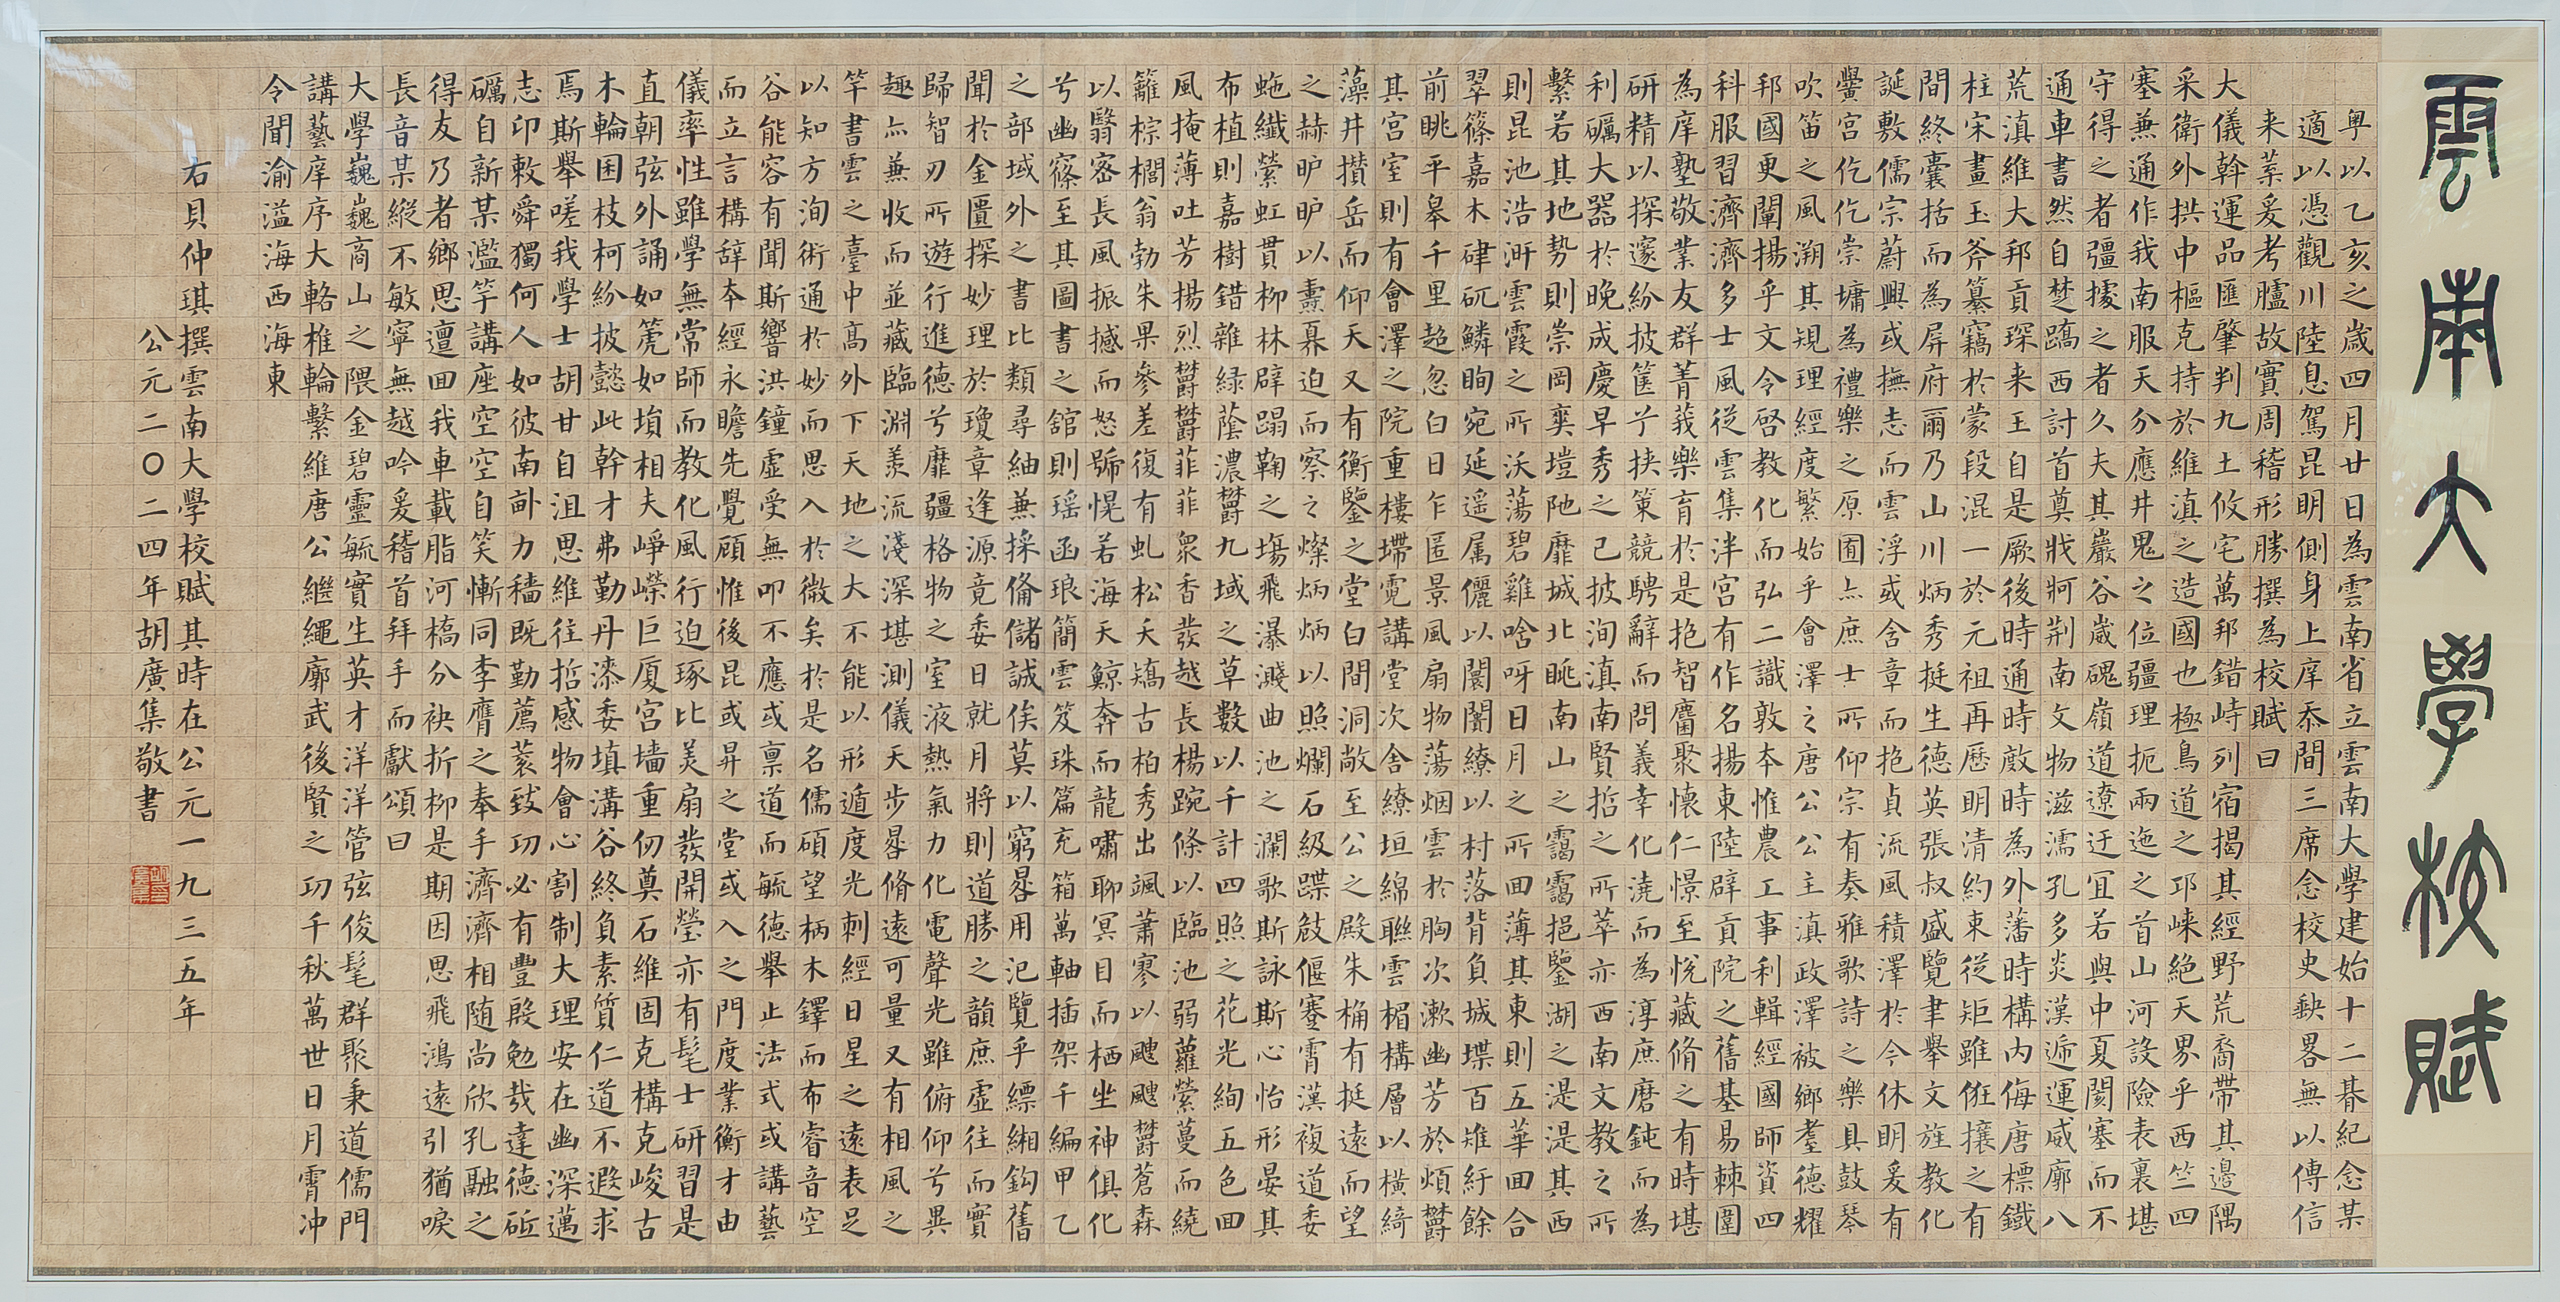 雲南大學校賦
粵以乙亥之歲四月廿日為雲南省立雲南大學建始十二朞紀念某
適以憑觀川陸息駕昆明側身上庠忝間三席念校史缺畧無以傳信
来葉爰考臚故實周稽形勝撰為校賦曰
大儀斡運品匯肇判九土攸宅萬邦錯峙列宿揭其經野荒裔帶其邊隅
采衛外拱中樞克持於維滇之造國也極鳥道之邛崍絕天界乎西竺四
塞兼通作我南服天分應井鬼之位疆理扼兩迤之首山河設險表裏堪
守得之者彊據之者久夫其巖谷崴磈嶺道遼迂宜若與中夏閡塞而不
通車書然自楚蹻西討首奠戕牁荆南文物滋濡孔多炎漢遞運威廓八
荒滇維大邦貢琛来王自是厥後時通時廢時為外藩時構内侮唐標鐵
柱宋畫玉斧纂竊於蒙段混一於元祖再歷明清約束從矩雖俇攘之有
間終囊括而為屏府爾乃山川炳秀挺生德英張叔盛覽聿舉文旌教化
誕敷儒宗蔚興或撫志而雲浮或含章而抱貞流風積澤於今休明爰有
黌宮仡仡崇墉為禮樂之原囿亦庶士所仰宗有奏雅歌詩之樂具鼓琴
吹笛之風溯其規理經度繁始乎會澤之唐公公主滇政澤被鄉耋德耀
邦國更闡揚乎文令啓教化而弘二識敦本惟農工事利輯經國師資四
科服習濟濟多士風從雲集泮宮有作名揚東陸辟貢院之舊基易棘圍
為庠塾敬業友群菁莪樂育於是抱智麕聚懷仁憬至悅藏脩之有時堪
研精以探邃紛披筐于挟策競騁辭而問義幸化澆而為淳庶磨鈍而為
利礪大器於晚成慶早秀之已披洵滇南賢哲之所萃亦西南文教之所
繫若其地勢則崇岡爽塏阤靡城北眺南山之靄靄挹鑒湖之湜湜其西
則昆池浩汧雲霞之所沃蕩碧雞唅呀日月之所回薄其東則五華回合
翠篠嘉木硉矹鱗眴宛延遥属儷以闤闠繚以村落背負城堞百雉紆餘
前眺平皋千里超忽白日乍匿景風扇物蕩烟雲於胸次漱幽芳於煩欝
其宮室則有會澤之院重樓墆霓講堂次舍繚垣綿聯雲楣構層以橫綺
藻井攢岳而仰天又有衡鑒之堂白間洞敞至公之殿朱桷有挺遠而望
之赫昈昈以燾冪迫而察之燦炳炳以照爛石級蹀敍偃蹇霄漢複道委
虵纖縈虹貫柳林辟蹋鞠之場飛瀑濺曲池之瀾歌斯詠斯心怡形晏其
布植則嘉樹錯雜緑蔭濃欝九域之草數以千計四照之花光絢五色回
風掩薄吐芳揚烈欝欝菲菲衆香發越長楊踠條以臨池弱蘿縈蔓而繞
籬棕櫚蓊勃朱果參差復有虬松夭矯古柏秀出颯蕭寥以颼飀欝蒼森
以翳密長風振撼而怒號愰若海天鯨奔而龍嘯聊冥目而栖坐神俱化
兮幽窱至其圖書之舘則瑶函琅簡雲笈珠篇充箱萬軸插架千編甲乙
之部域外之書比類尋紬兼採脩儲誠俟莫以窮晷用氾覽乎縹緗鈎舊
聞於金匱探妙理於瓊章逢源竟委日就月將則道勝之韻庶虛往而實
歸智刃所遊行進德兮靡疆格物之室液熱氣力化電聲光雖俯仰兮異
趣亦兼收而並藏臨淵羡流淺深堪測儀天步晷脩遠可量又有相風之
竿書雲之臺中高外下天地之大不能以形遁度光刺經日星之遠表足
以知方洵術通於妙而思入於微矣於是名儒碩望柄木鐸而布睿音空
谷能容有聞斯響洪鐘虛受無叩不應或禀道而毓德舉止法式或講藝
而立言構辭本經永瞻先覺顧惟後昆或昇之堂或入之門度業衡才由
儀率性雖學無常師而教化風行迫琢比美扇發開瑩亦有髦士研習是
直朝弦外誦如箎如塤相夫崢嶸巨厦宮墻重仞奠石維固克構克峻古
木輪囷枝柯紛披懿此幹才弗勤丹漆委填溝谷終負素質仁道不遐求
焉斯舉嗟我學士胡甘自沮思維往哲感物會心割制大理安在幽深邁
志卬敕舜獨何人如彼南畝力穡既勤薦蓘致功必有豐殷勉哉達德斫
礪自新某濫竽講座空空自笑慚同李膺之奉手濟濟相随尚欣孔融之
得友乃者鄉思邅回我車載脂河橋分袂折柳是期因思飛鴻遠引猶唳
長音某縱不敏寧無越吟爰稽首拜手而獻頌曰
大學巍巍商山之隈金碧靈毓實生英才洋洋管弦俊髦群聚秉道儒門
講藝庠序大輅椎輪繫維唐公繼繩廓武後賢之功千秋萬世日月霄冲
令聞渝溢海西海東
右貝仲琪撰雲南大學校賦其時在公元一九三五年
公元二〇二四年胡廣集敬書